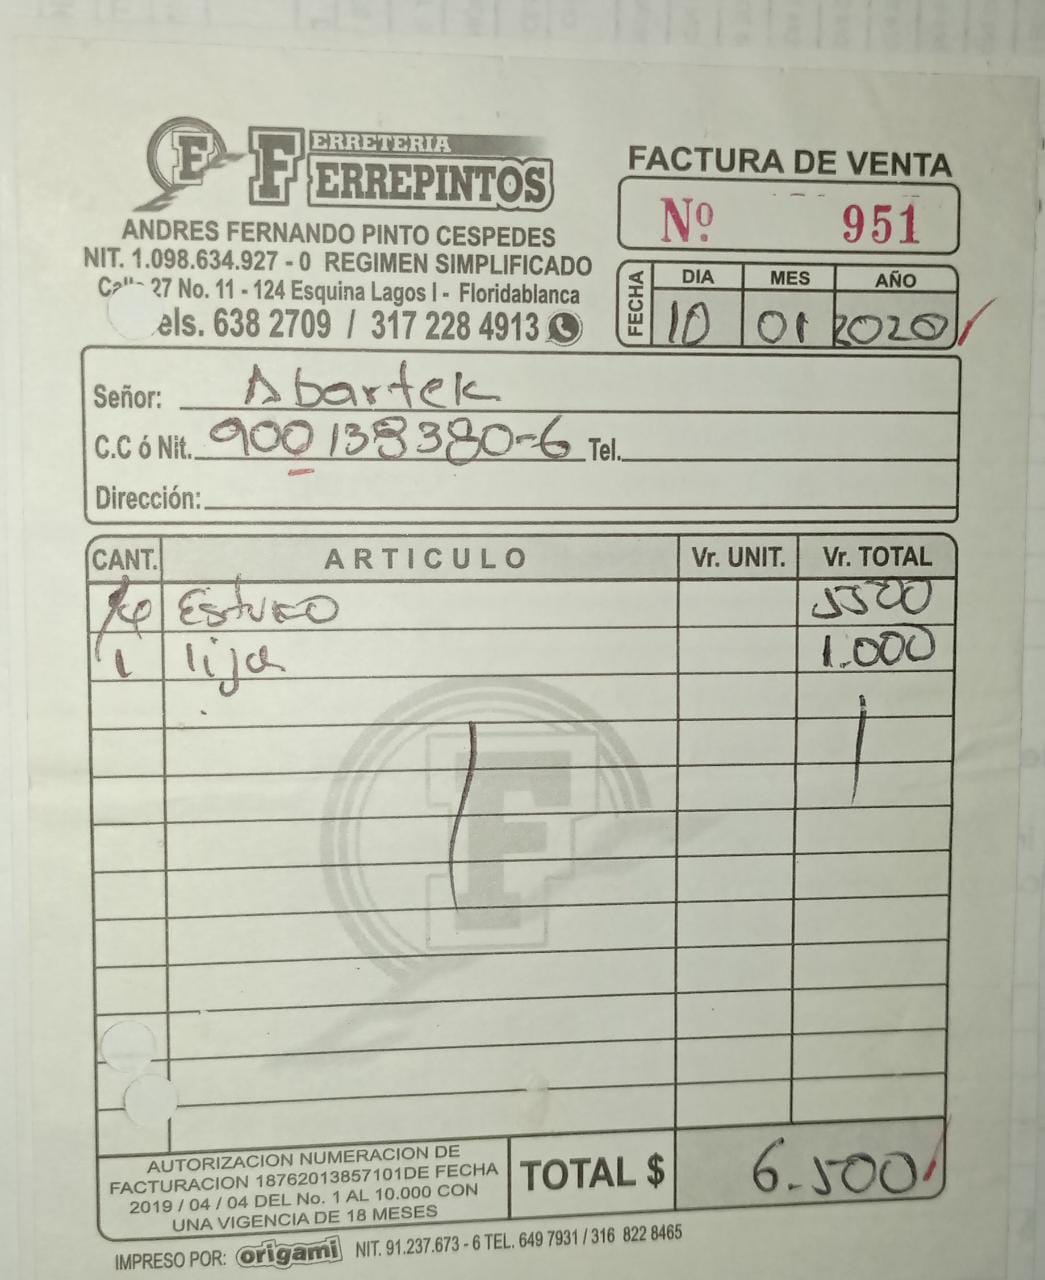 FERRETERIA
FERREPINTOS
ANDRES FERNANDO PINTO CESPEDES
NIT. 1.098.634.927 - 0 REGIMEN SIMPLIFICADO
27 No. 11 - 124 Esquina Lagos I - Floridablanca
els. 638 2709 / 317 228 4913
FACTURA DE VENTA
Nº 951
FECHA
DIA MES AÑO
10 01 2020
Señor: Abartek
C.C ó Nit. 900138380-6 Tel.
Dirección:
CANT. ARTICULO Vr. UNIT. Vr. TOTAL
Estuco 5500
1 lija 1.000
AUTORIZACION NUMERACION DE
FACTURACION 18762013857101DE FECHA
2019 / 04 / 04 DEL No. 1 AL 10.000 CON
UNA VIGENCIA DE 18 MESES
TOTAL $ 6.500
IMPRESO POR: origami NIT. 91.237.673 - 6 TEL. 649 7931 / 316 822 8465